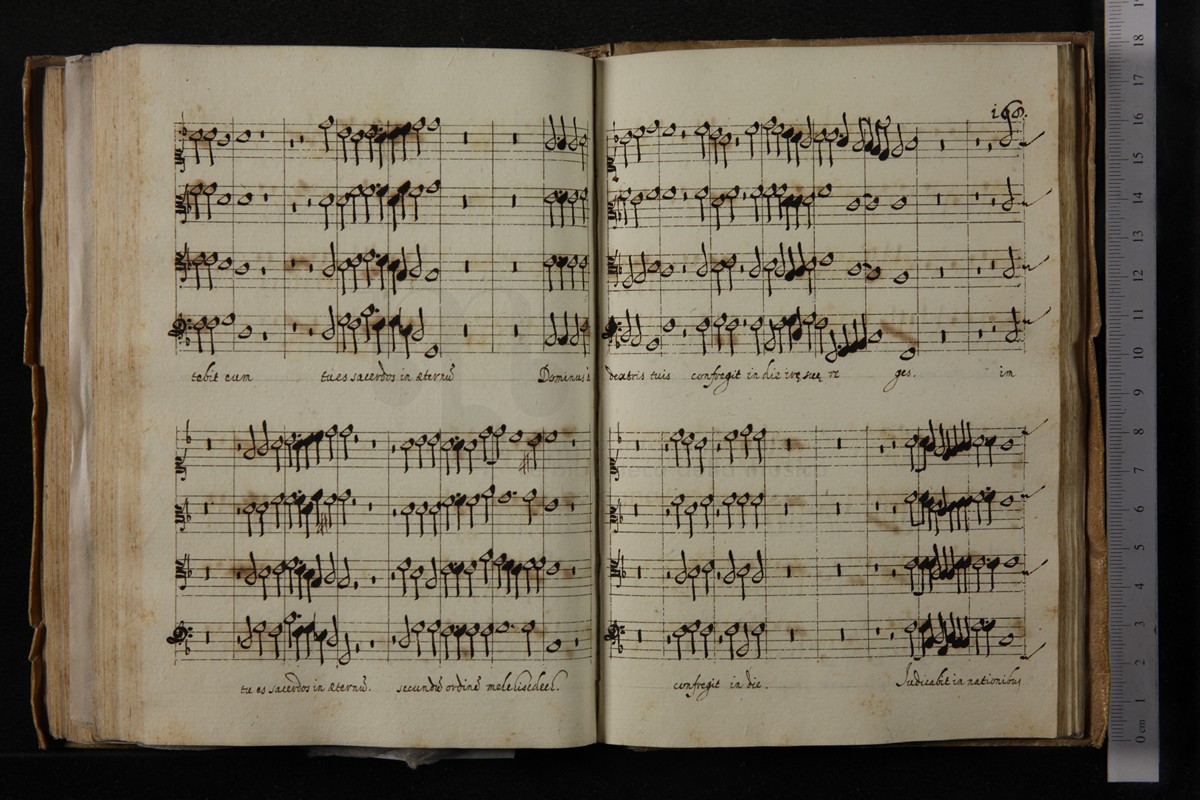 166.
tebit eum tu es sacerdos in æternũ Dominus à
tu es sacerdos in æternũ. secundũ ordinẽ melchisedech.
dextris tuis confregit in die irę suę re ges. im
confregit in die. Judicabit in nationibus
0 cm 1 2 3 4 5 6 7 8 9 10 11 12 13 14 15 16 17 18